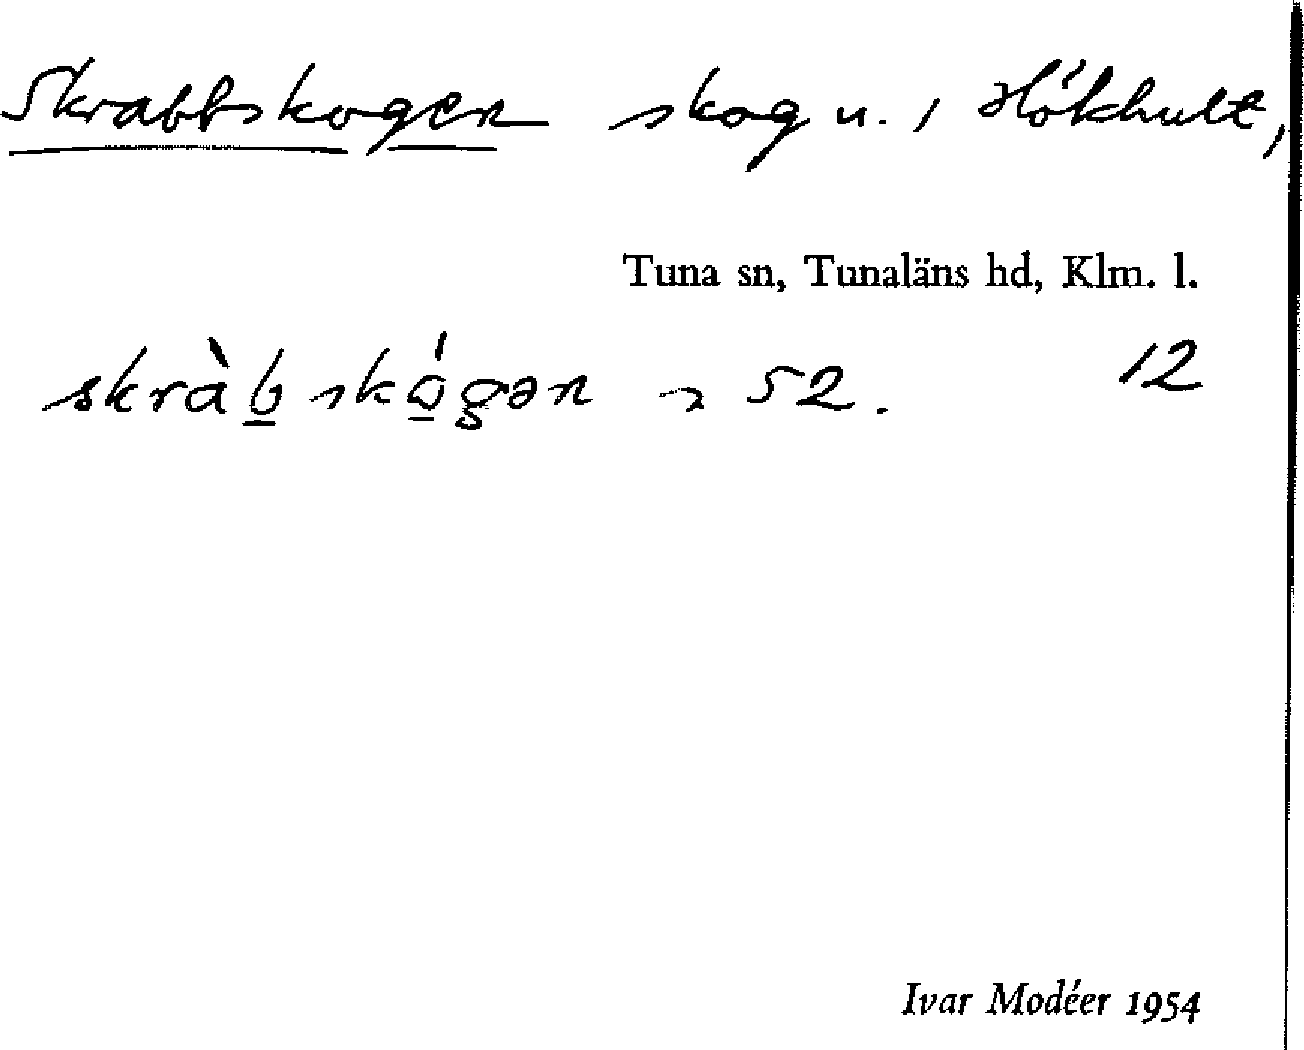 Skrabbskogen skog u. , Hökhult,
Tuna sn, Tunaläns hd, Klm. l.
skràb̲skó̲gən 52. 12
Ivar Modéer 1954